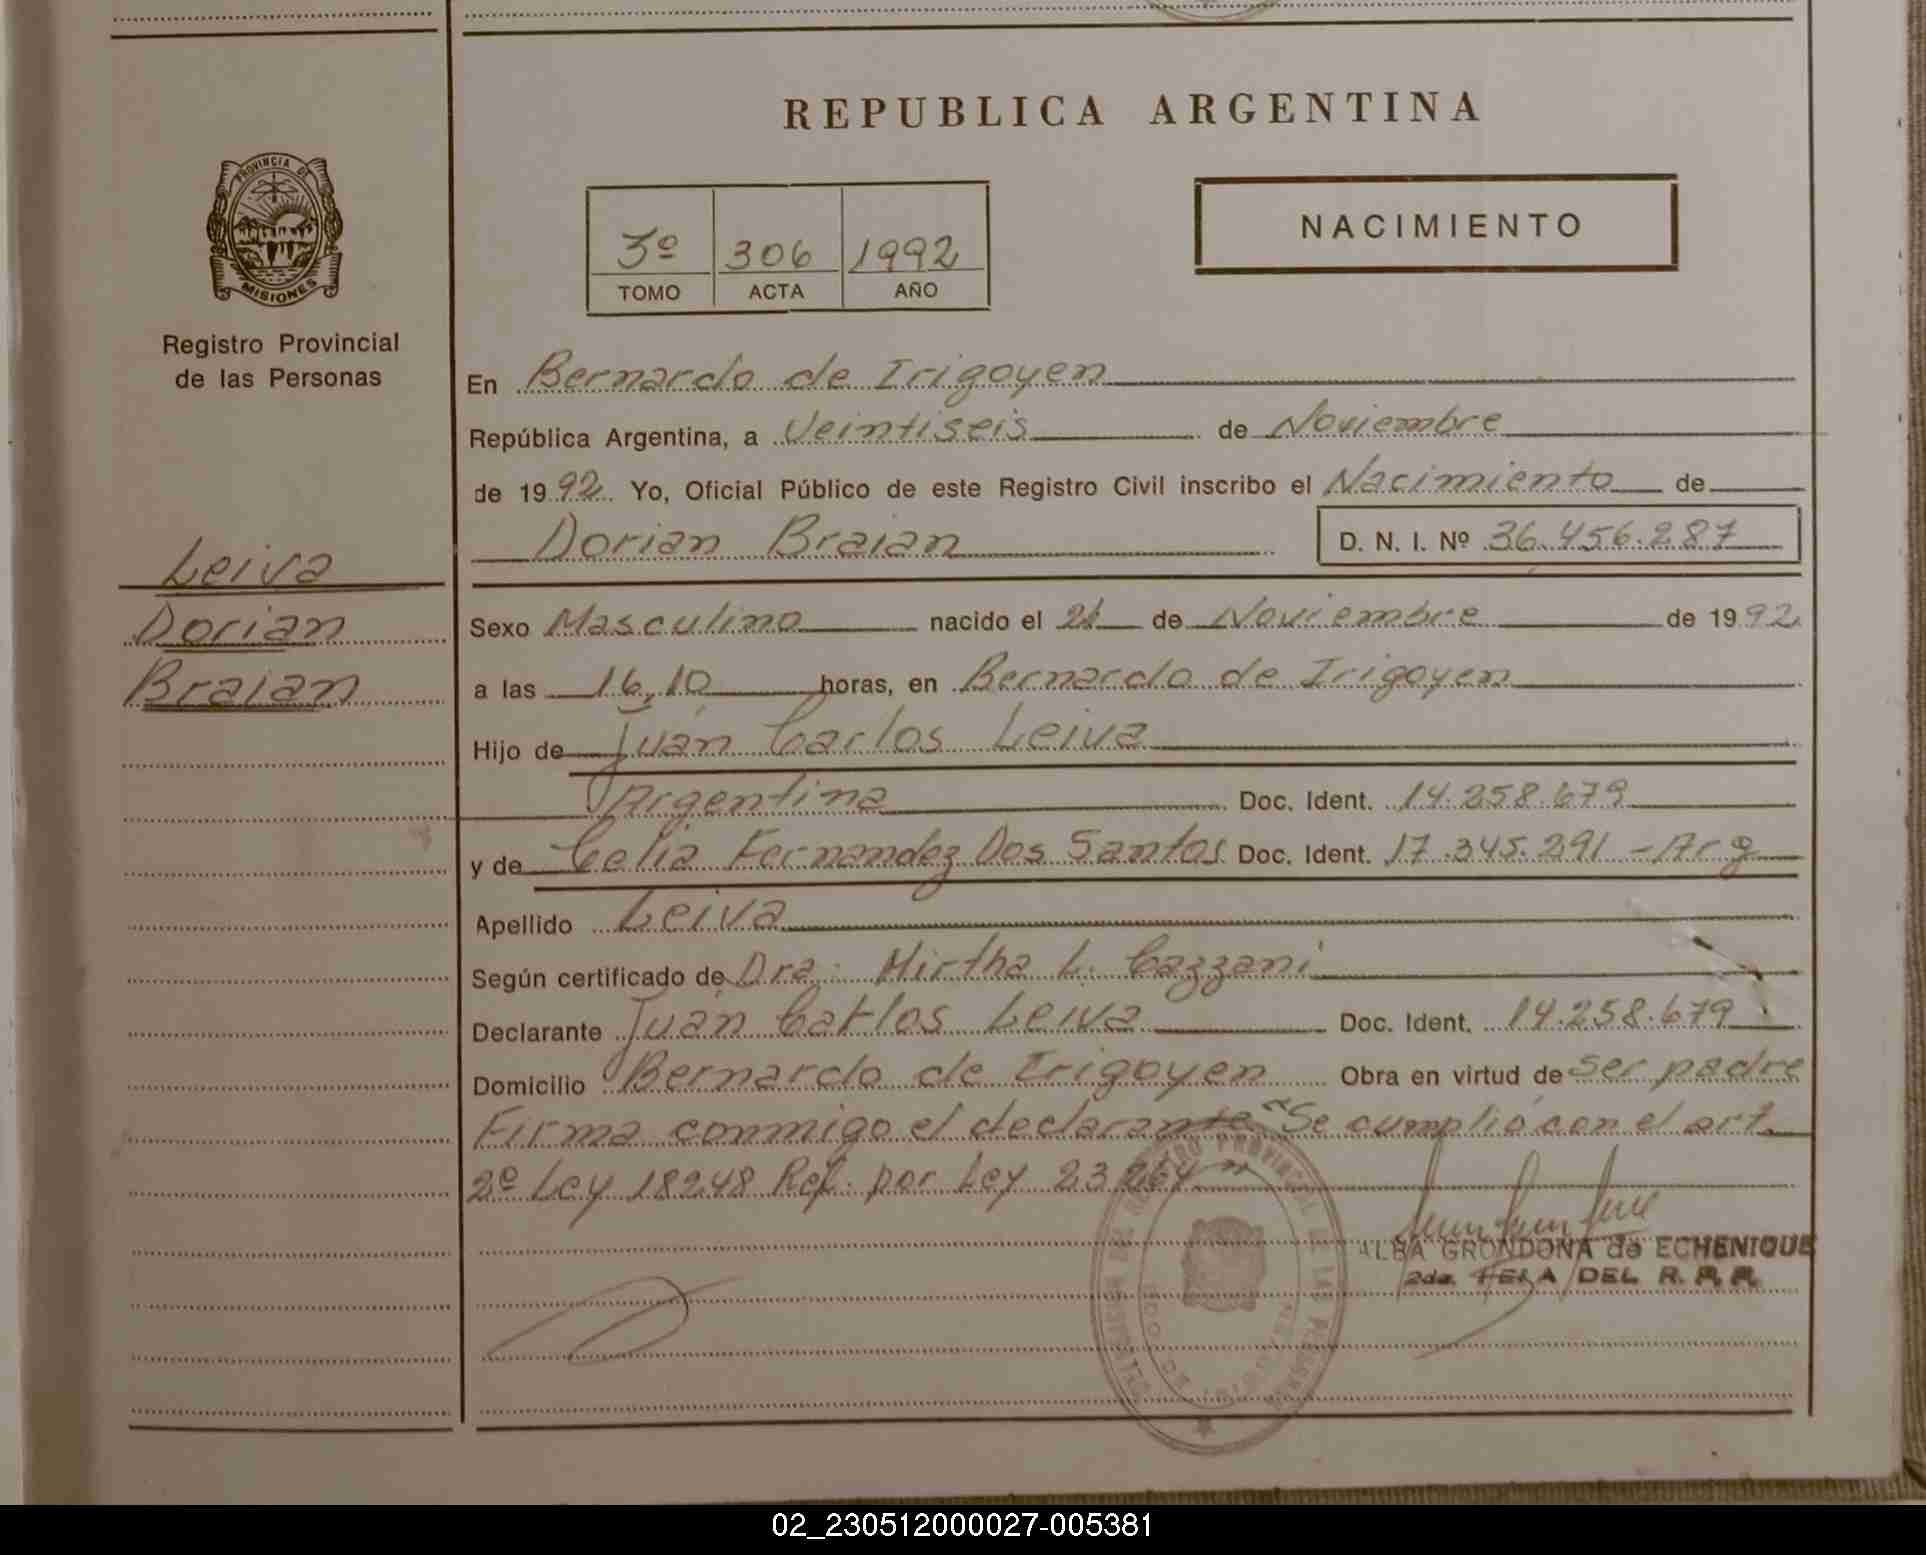 REPUBLICA ARGENTINA
PROVINCIA DE
MISIONES
Registro Provincial
de las Personas
3º 306 1992
TOMO ACTA AÑO
NACIMIENTO
En Bernardo de Irigoyen
República Argentina, a Veintiseis de Noviembre
de 1992 Yo, Oficial Público de este Registro Civil inscribo el Nacimiento de
Dorian Braian D. N. I. Nº 36.456.287
Leiva
Dorian
Braian
Sexo Masculino nacido el de Noviembre de 1992
a las 16,10 horas, en Bernardo de Irigoyen
Hijo de Juan Carlos Leiva
Argentina Doc. Ident. 14.258.679
y de Celia Fernandez Dos Santos Doc. Ident. 17.345.291 - Arg
Apellido Leiva
Según certificado de Dra. Mirtha L. Cazzani
Declarante Juan Carlos Leiva Doc. Ident. 14.258.679
Domicilio Bernardo de Irigoyen Obra en virtud de ser padre
Firma conmigo el declarante "Se cumplió con el art.
2º Ley 18248 Ref. por Ley 23.264"
ALBA GRONDONA de ECHENIQUE
2da. DEL R. P. P.
02_230512000027-005381